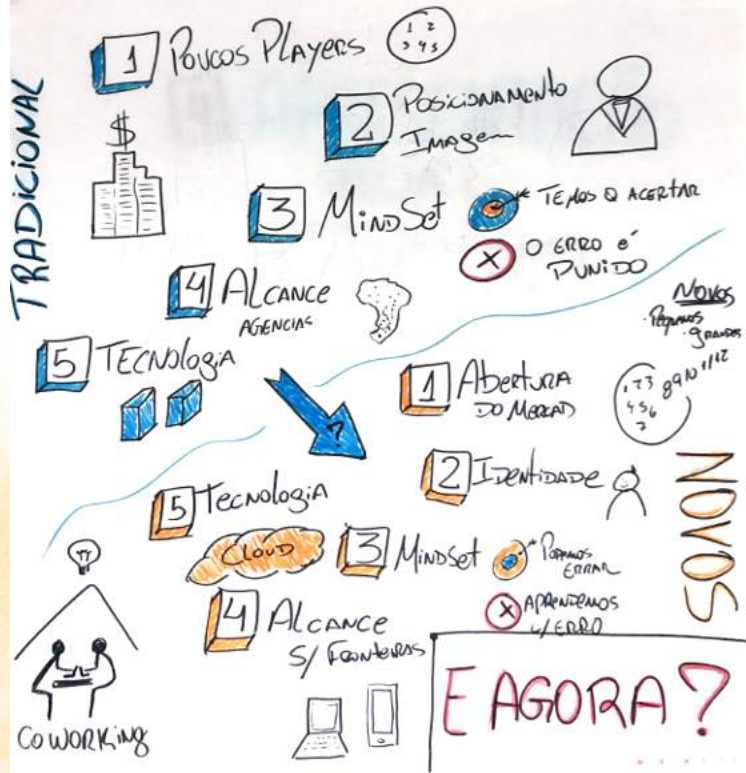 TRADICIONAL
1 POUCOS PLAYERS
1 2
3 4 5
$
2 POSICIONAMENTO
IMAGEM
3 MINDSET
TEMOS Q ACERTAR
X O ERRO É
PUNIDO
4 ALCANCE
AGENCIAS
5 TECNOLOGIA
?
NOVOS
NOVOS
· PEQUENOS
· GRANDES
1 ABERTURA
DO MERCAD
1 2 3 8 9 10 11 12
4 5 6
7
2 IDENTIDADE
3 MINDSET
PODEMOS
ERRAR
X APRENDEMOS
C/ ERRO
4 ALCANCE
S/ FRONTEIRAS
5 TECNOLOGIA
CLOUD
COWORKING
E AGORA?